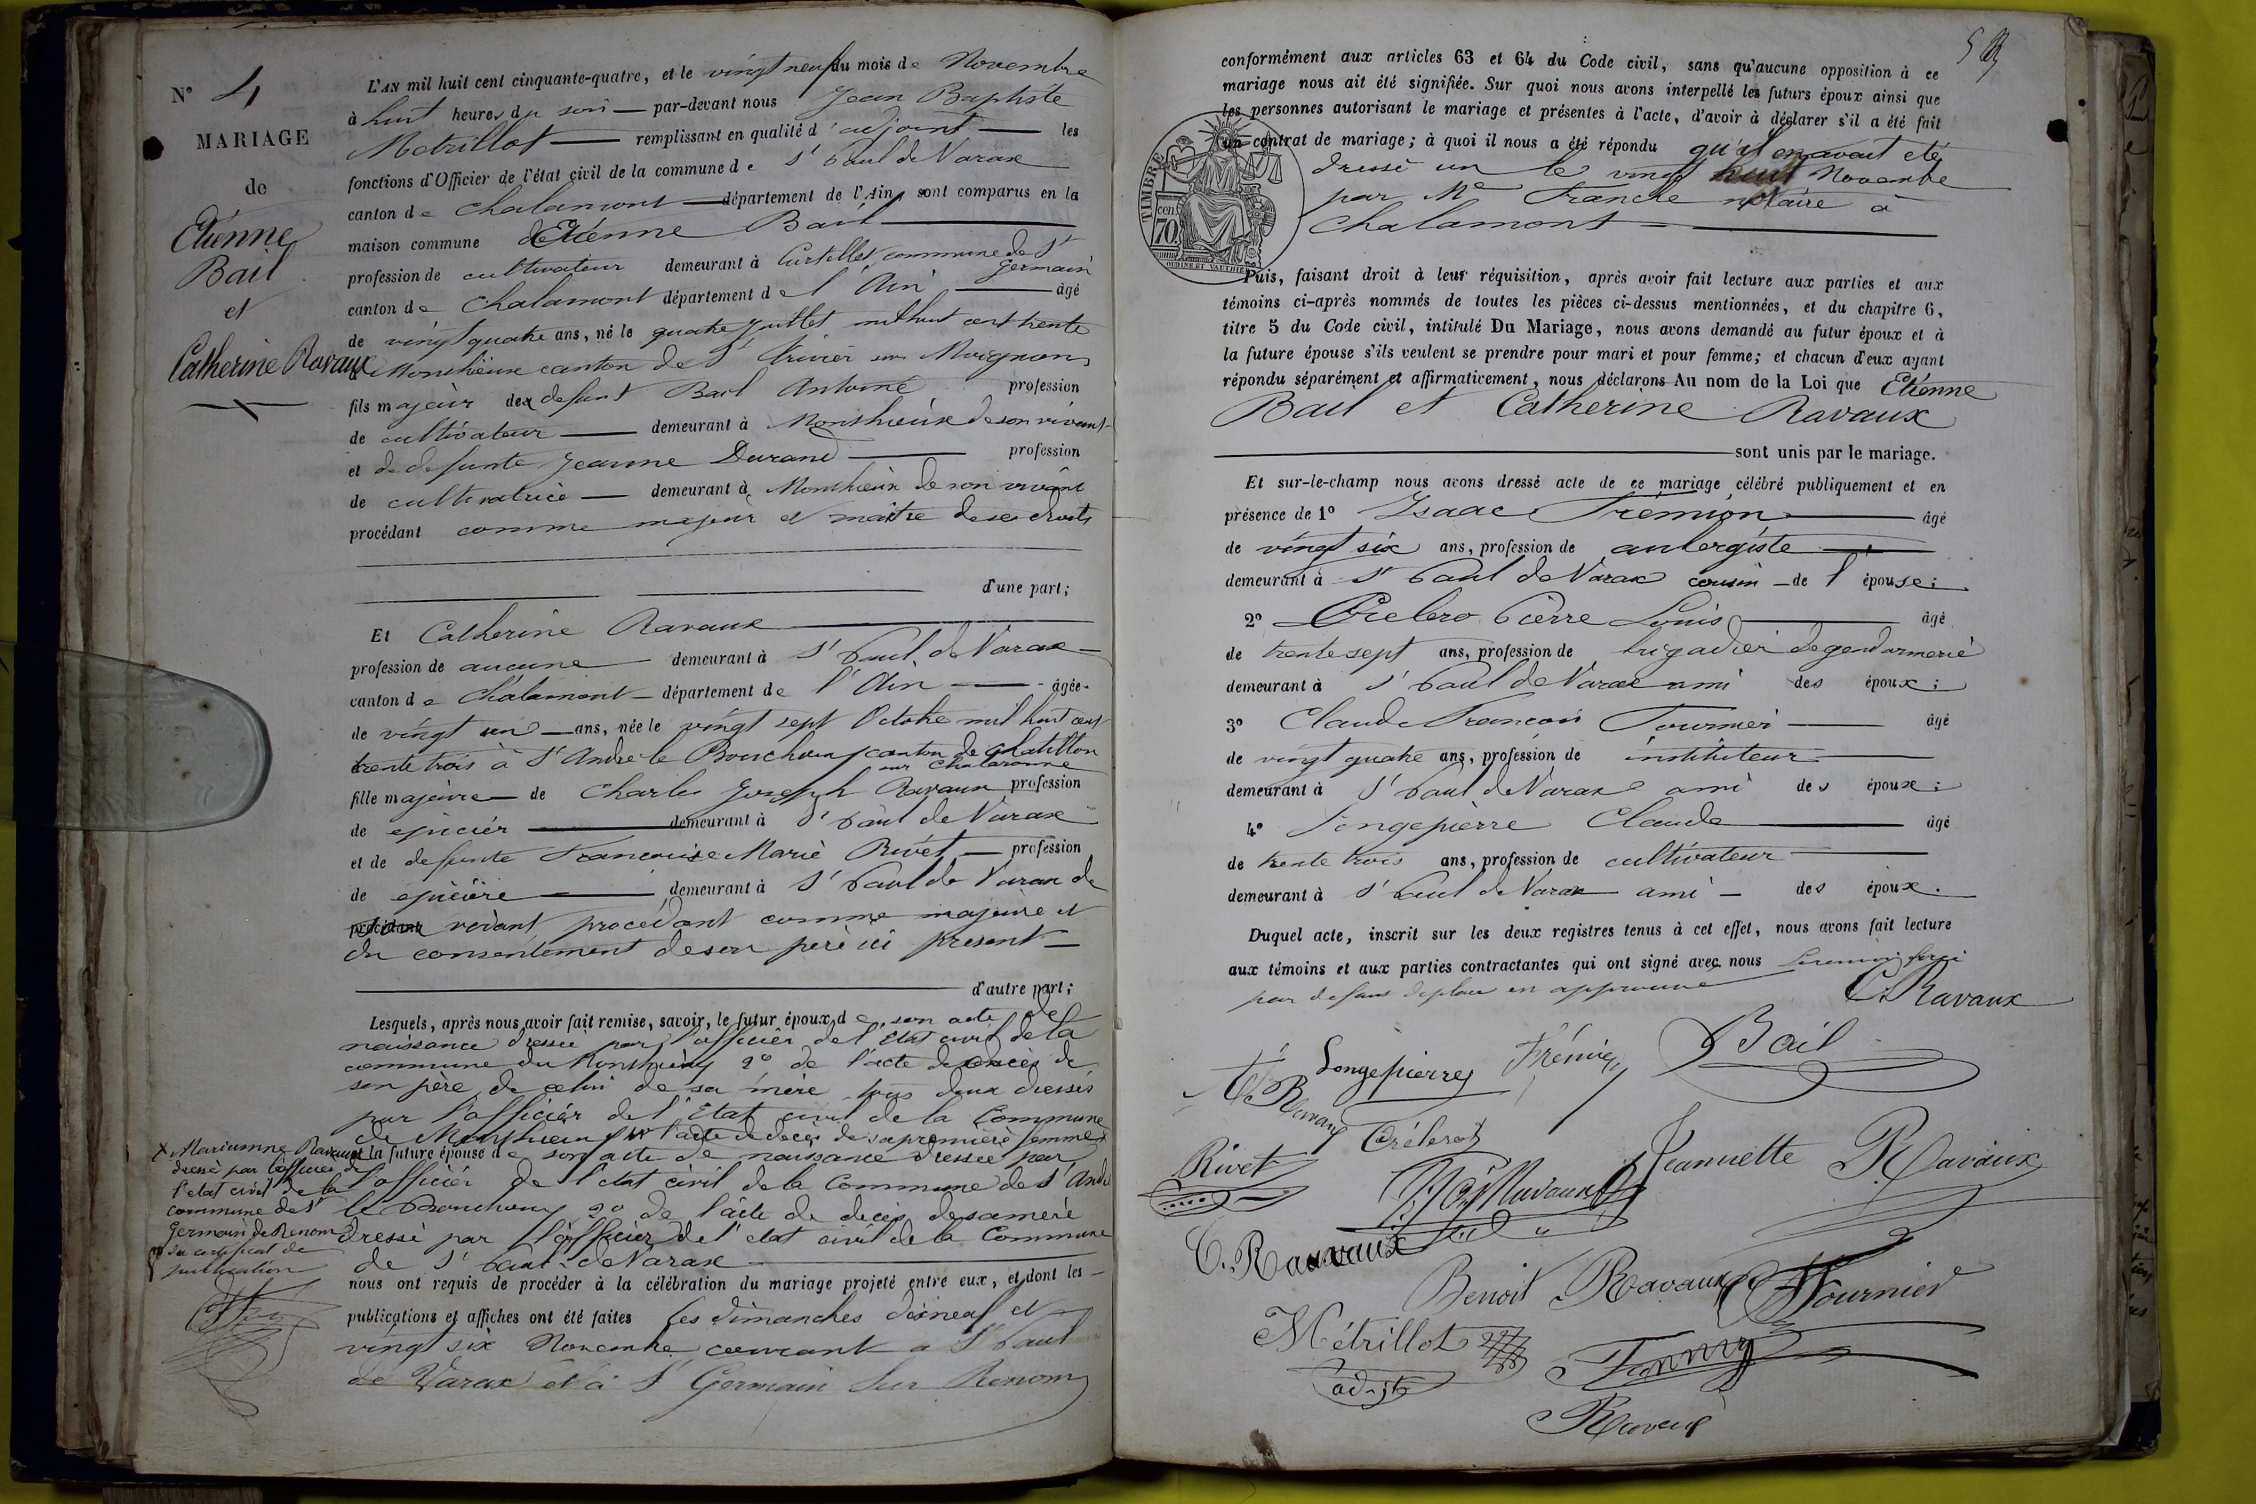 N° 4
MARIAGE
de
Etienne
Bail
et
Catherine Ravaux
L'AN mil huit cent cinquante-quatre, et le vingt neuf du mois de Novembre
à huit heures du soir par-devant nous Jean Baptiste
Metrillot remplissant en qualité d'adjoint les
fonctions d'Officier de l'état civil de la commune de St Paul de Varax
canton de Chalamont département de l'Ain, sont comparus en la
maison commune Etienne Bail
profession de cultivateur demeurant à Curtillet, commune de St Germain
canton de Chalamont département de l'Ain âgé
de vingt quatre ans, né le quatre Juillet mil huit cent trente
à Monthieux canton de St Trivier sur Moignans
fils majeur de defunt Bail Antoine profession
de cultivateur demeurant à Monthieux de son vivant
et de defunte Jeanne Durand profession
de cultivatrice demeurant à Monthieux de son vivant
procédant comme majeur et maître de ses droits
d'une part;
Et Catherine Ravaux
profession de aucune demeurant à St Paul de Varax
canton de Chalamont département de l'Ain âgée
de vingt un ans, née le vingt sept Octobre mil huit cent
trente trois à St André le Bouchoux canton de Chatillon
sur Chalaronne
fille majeure de Charles Joseph Ravaux profession
de epicier demeurant à St Paul de Varax
et de defunte Francoise Marie Rivet profession
de epiciere demeurant à St Paul de Varax de
vivant procédant comme majeure et
du consentement de son père ici present
d'autre part;
Lesquels, après nous avoir fait remise, savoir, le futur époux de son acte de
naissance dressée par l'officier de l'Etat civil de la
commune du Monthieux 2° de l'acte de decès de
son père de celui de sa mère tous deux dressés
par l'officier de l'Etat civil de la Commune
de Monthieux l'acte de decès de sa premiere femme
x Mariamne Ravaux
dressé par l'officier de
l'etat civil de la
commune de St
Germain de Renom
du certificat de
publication
et la future épouse de son acte de naissance dressée par
l'officier de l'etat civil de la Commune de St André
le Bouchoux 2° de l'acte de decès de sa mère
dressé par l'officier de l'etat civil de la Commune
de St Paul de Varax
nous ont requis de procéder à la célébration du mariage projeté entre eux, et dont les
publications et affiches ont été faites les dimanches dixneuf et
vingt six Novembre courant a St Paul
de Varax et à St Germain sur Renom
conformément aux articles 63 et 64 du Code civil, sans qu'aucune opposition à ce
mariage nous ait été signifiée. Sur quoi nous avons interpellé les futurs époux ainsi que
les personnes autorisant le mariage et présentes à l'acte, d'avoir à déclarer s'il a été fait
un contrat de mariage; à quoi il nous a été répondu qu'il en avait été
dressé un le vingt huit Novembre
par Me Franche notaire à
Chalamont
TIMBRE
70 cen.
OUDINE ET VAUTHIER
Puis, faisant droit à leur réquisition, après avoir fait lecture aux parties et aux
témoins ci-après nommés de toutes les pièces ci-dessus mentionnées, et du chapitre 6,
titre 5 du Code civil, intitulé Du Mariage, nous avons demandé au futur époux et à
la future épouse s'ils veulent se prendre pour mari et pour femme; et chacun d'eux ayant
répondu séparément et affirmativement, nous déclarons Au nom de la Loi que Etienne
Bail et Catherine Ravaux
sont unis par le mariage.
Et sur-le-champ nous avons dressé acte de ce mariage célébré publiquement et en
présence de 1° Isaac Frémion âgé
de vingt six ans, profession de aubergiste
demeurant à St Paul de Varax cousin de l'épouse;
2° Crelero Pierre Louis âgé
de trente sept ans, profession de brigadier de gendarmerie
demeurant à St Paul de Varax ami des époux;
3° Claude François Fournier âgé
de vingt quatre ans, profession de instituteur
demeurant à St Paul de Varax ami des époux;
4° Longepierre Claude âgé
de trente trois ans, profession de cultivateur
demeurant à St Paul de Varax ami des époux.
Duquel acte, inscrit sur les deux registres tenus à cet effet, nous avons fait lecture
aux témoins et aux parties contractantes qui ont signé avec nous
C. Ravaux
Longepierre
Bail
Ravaux
Rivet
Jeannette Ravaux
C. Ravaux
Benoit Ravaux
Fournier
Métrillot
adjt
Fanny
Ravaux